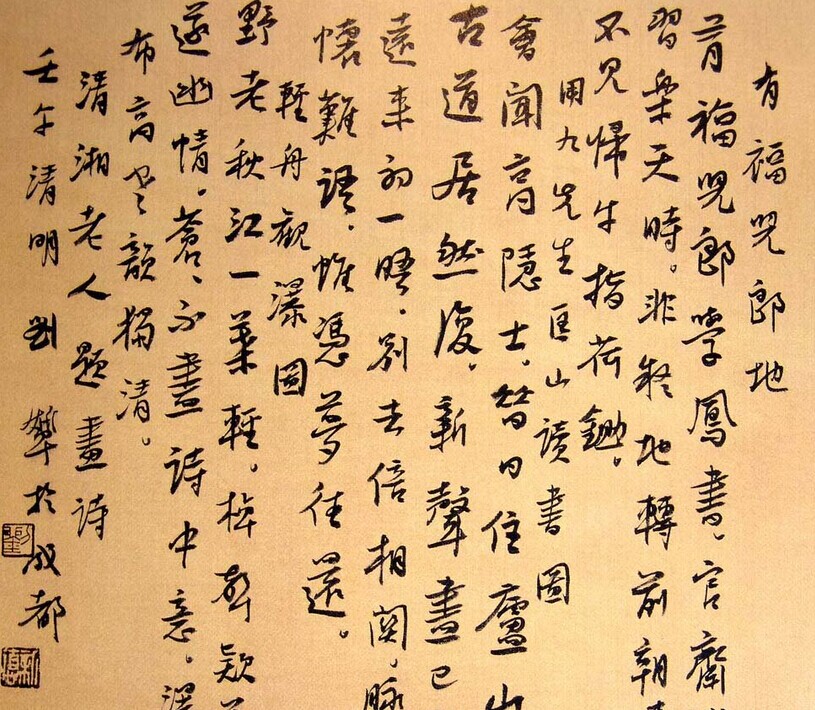 有福兒郎地
有福兒郎學鳳書。官齋
天時。非經地轉前朝
不見歸牛指荷鋤。
用九先生匡山讀書圖
會聞高隱士。昔日住廬山
古道居然復。新聲盡已
遠来初一晤。別去倍相関。脉
懷難語。惟憑夢往還。
輕舟觀瀑圖
野老秋江一葉輕。棹聲欸
遂幽情。蒼〻不盡詩中意。瀑
布高空韻獨清。
清湘老人題畫詩
壬午清明劉犖於成都